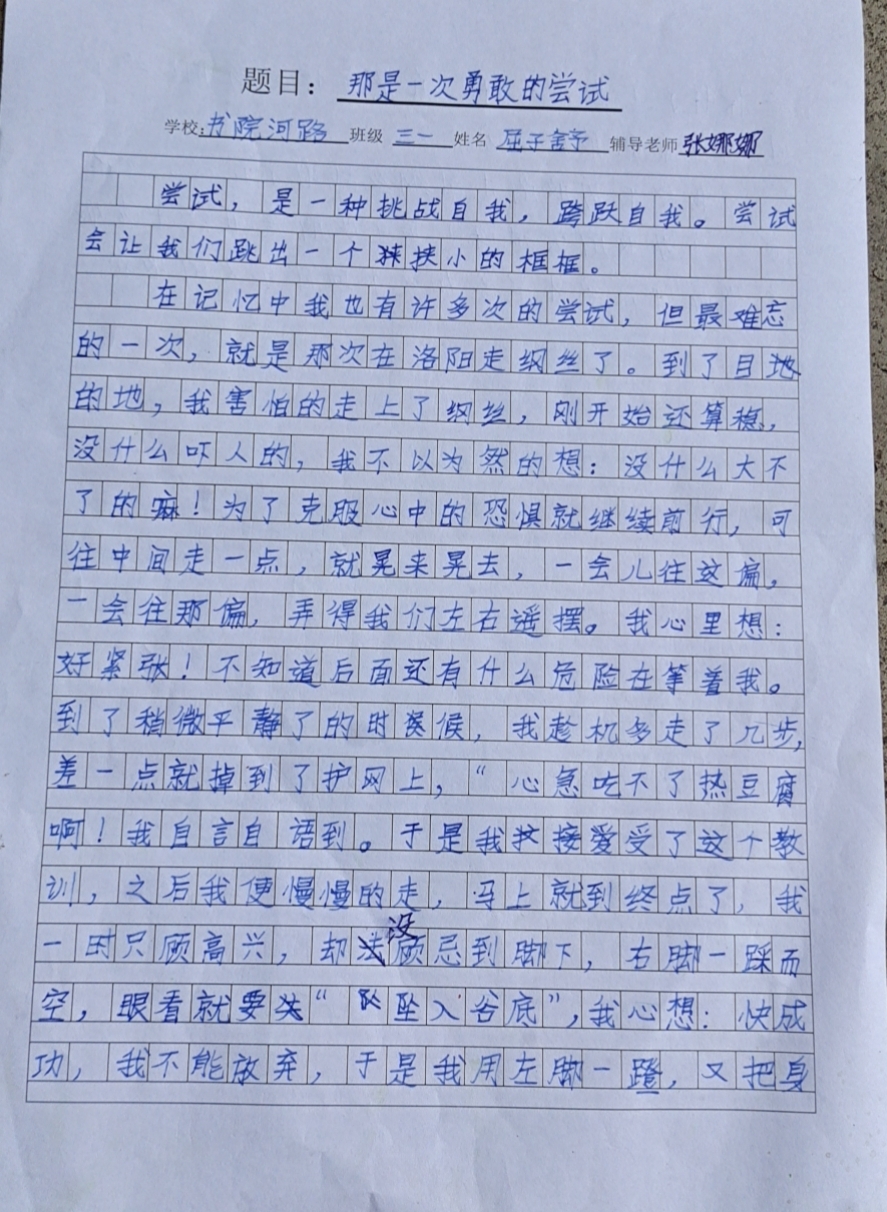 题目：那是一次勇敢的尝试
学校：书院河路 班级 三一 姓名 屈子舒 辅导老师 张娜娜
尝试，是一种挑战自我，跨跃自我。尝试
会让我们跳出一个狭小的框框。
在记忆中我也有许多次的尝试，但最难忘
的一次，就是那次在洛阳走纲丝了。到了目地
的地，我害怕的走上了纲丝，刚开始还算稳，
没什么吓人的，我不以为然的想：没什么大不
了的嘛！为了克服心中的恐惧就继续前行，可
往中间走一点，就晃来晃去，一会儿往这偏，
一会往那偏，弄得我们左右遥摆。我心里想：
好紧张！不知道后面还有什么危险在等着我。
到了稍微平静了的时候，我趁机多走了几步，
差一点就掉到了护网上，“心急吃不了热豆腐
啊！我自言自语到。于是我接受了这个教
训，之后我便慢慢的走，马上就到终点了，我
一时只顾高兴，却没顾忌到脚下，右脚一踩而
空，眼看就要“坠入谷底”，我心想：快成
功，我不能放弃，于是我用左脚一蹬，又把身